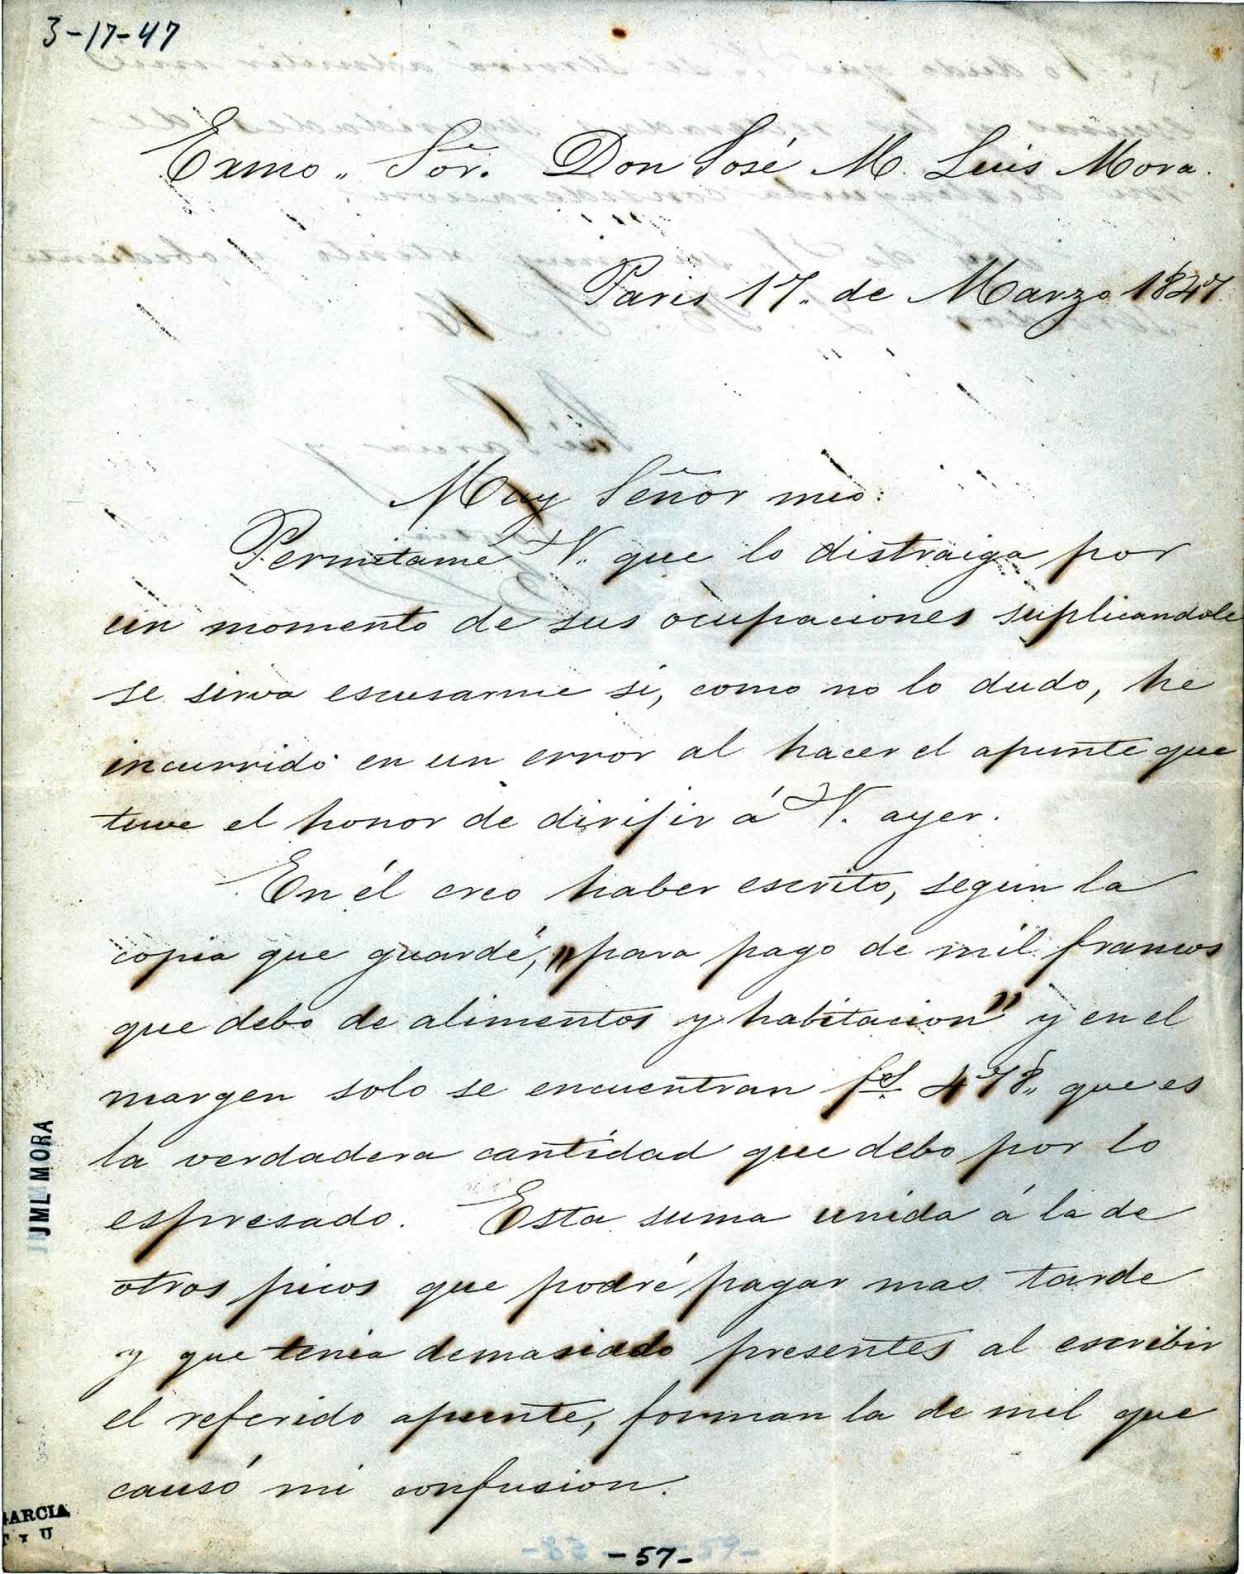 3-17-47
Exmo. Sōr. Don José M. Luis Mora.
Paris 17. de Marzo 1847
Muy Señor mio:
Permitame V. que lo distraiga por
un momento de sus ocupaciones suplicandole
se sirva escusarme si, como no lo dudo, he
incurrido en un error al hacer el apunte que
tuve el honor de dirijir á V. ayer.
En él creo haber escrito, segun la
copia que guardé, "para pago de mil francos
que debo de alimentos y habitacion" y en el
margen solo se encuentran fcs. 478,, que es
la verdadera cantidad que debo por lo
espresado. Esta suma unida á la de
otros picos que podré pagar mas tarde
y que tenia demasiado presentes al escribir
el referido apunte, forman la de mil que
causó mi confusion.
JML MORA
GARCIA
-57-